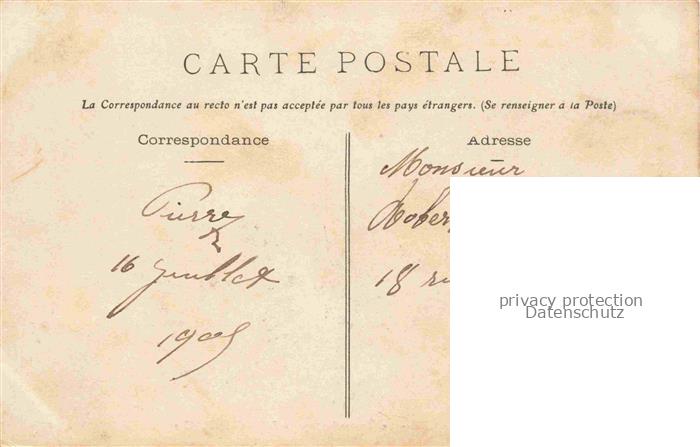 CARTE POSTALE
La Correspondance au recto n'est pas acceptée par tous les pays étrangers. (Se renseigner à la Poste)
Correspondance
Pierre
16 Juillet
1905
Adresse
Monsieur
18
privacy protection
Datenschutz